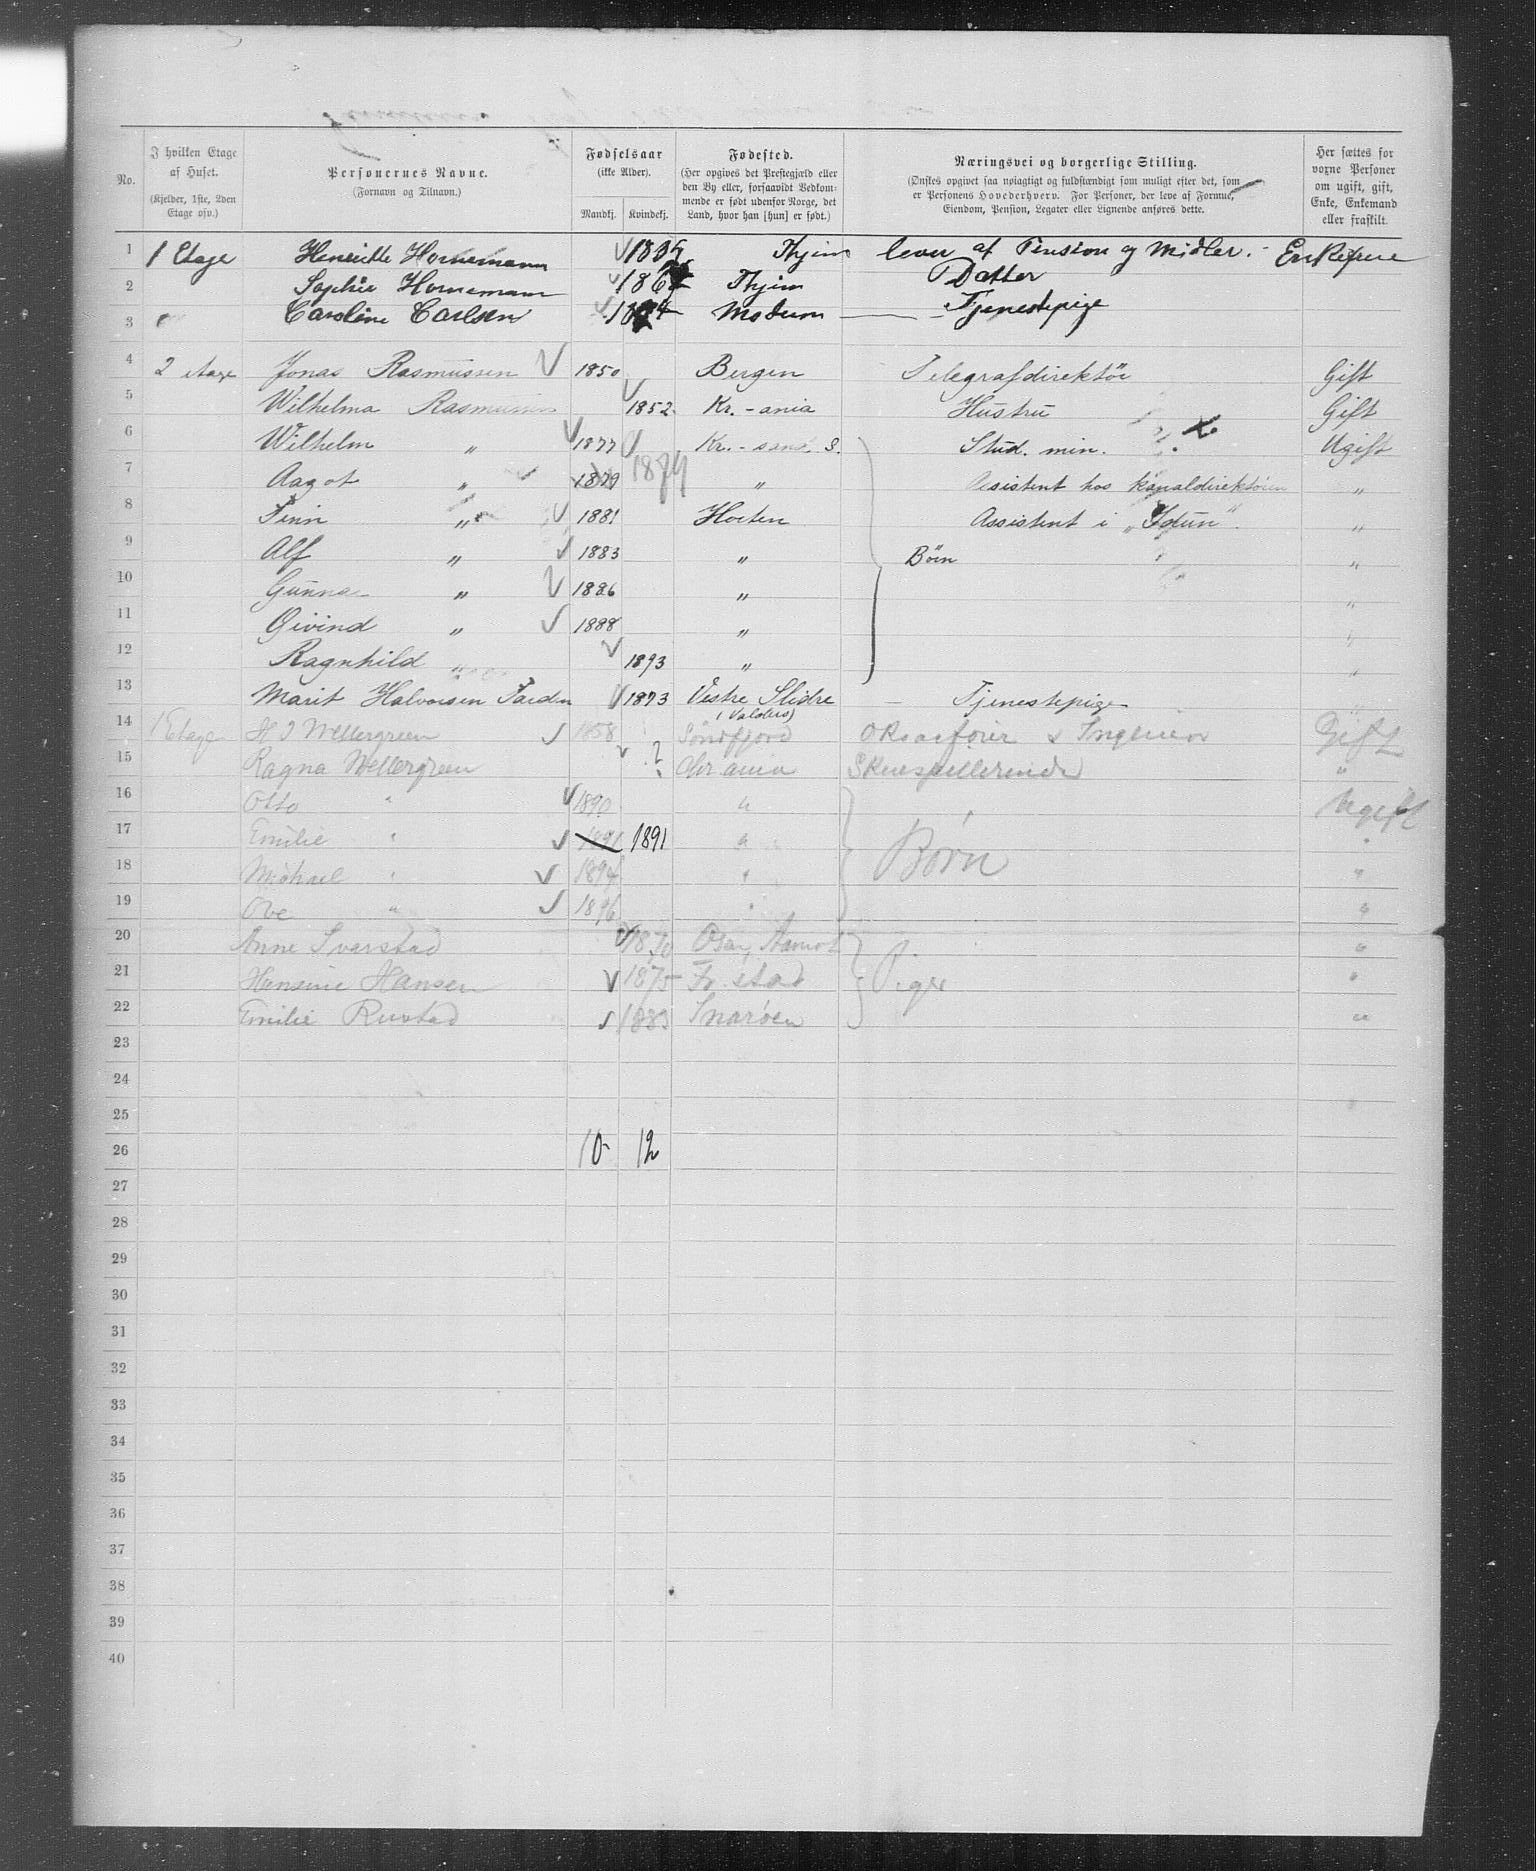 No. I hvilken Etage af Huset. (Kjelder, 1ste, 2den Etage osv.) Personernes Navne. (Fornavn og Tilnavn.) Fødselsaar (ikke Alder). Mandkj. Kvindekj. Fødested. (Her opgives det Prestegjæld eller den By eller, forsaavidt Vedkommende er født udenfor Norge, det Land, hvor han [hun] er født.) Næringsvei og borgerlige Stilling. (Ønskes opgivet saa nøiagtigt og fuldstændigt som muligt efter det, som er Personens Hovederhverv. For Personer, der leve af Formue, Eiendom, Pension, Legater eller Lignende anføres dette. Her sættes for voxne Personer om ugift, gift, Enke, Enkemand eller fraskilt.
1 1 Etage Henriette Hornemann Thjim lever af Pension og Midler. Enkefrue
2 Sophie Hornemann Thjim Datter
3 Caroline Carlsen Modum Tjenestepige
4 2 etage Jonas Rasmussen 1850 Bergen Telegrafdirektör Gift
5 Wilhelma Rasmussen 1852 Kr.-ania Hustru Gift
6 Wilhelm " 1877 Kr.-sand. S. Stud. min. Ugift
7 Aagot " 1879 1879 " Assistent hos kanaldirektören "
8 Finn " 1881 Horten Assistent i "Idun". "
9 Alf " 1883 " Börn "
10 Gunnar " 1886 " "
11 Øivind " 1888 " "
12 Ragnhild " 1893 " "
13 Marit Halvorsen 1873 Vestre Slidre (Valders) Tjenestepige "
14 1 Etage H J Wettergreen 1858 Söndfjord Oksefører & Ingeniør Gift
15 Ragna Wettergreen ? Chr ania Skuespillerinde "
16 Otto " 1890 " Ugift
17 Emilie " 1891 1891 " Børn "
18 Michael " 1894 " "
19 Ove " 1896 " "
20 Anne Svarstad 1870 Aamot "
21 Hansine Hansen 1875 Fr.stad Piger "
22 Emilie Rustad 1883 Snarøen "
23
24
25
26 10 12
27
28
29
30
31
32
33
34
35
36
37
38
39
40